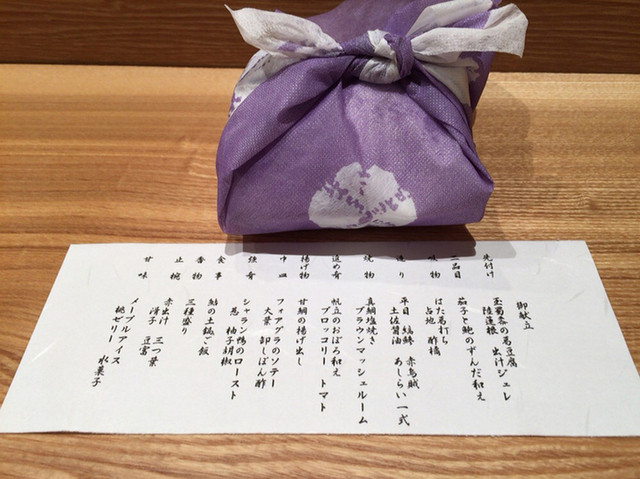 御献立
先付け
玉蜀黍の葛豆腐
陸蓮根 出汁ジュレ
二品目
茄子と鮑のずんだ和え
吸物
はた葛打ち
占地 酢橘
造り
平目 縞鯵 赤烏賊
土佐醤油 あしらい一式
焼物
真鯛塩焼き
ブラウンマッシュルーム
進め肴
帆立のおぼろ和え
ブロッコリー トマト
揚げ物
甘鯛の揚げ出し
中皿
フォアグラのソテー
大葉 卸しぽん酢
強肴
シャラン鴨のロースト
葱 柚子胡椒
食事
鮎の土鍋ご飯
香物
三種盛り
止椀
赤出汁 三つ葉
滑子 豆富
甘味
メープルアイス
桃ゼリー 水菓子